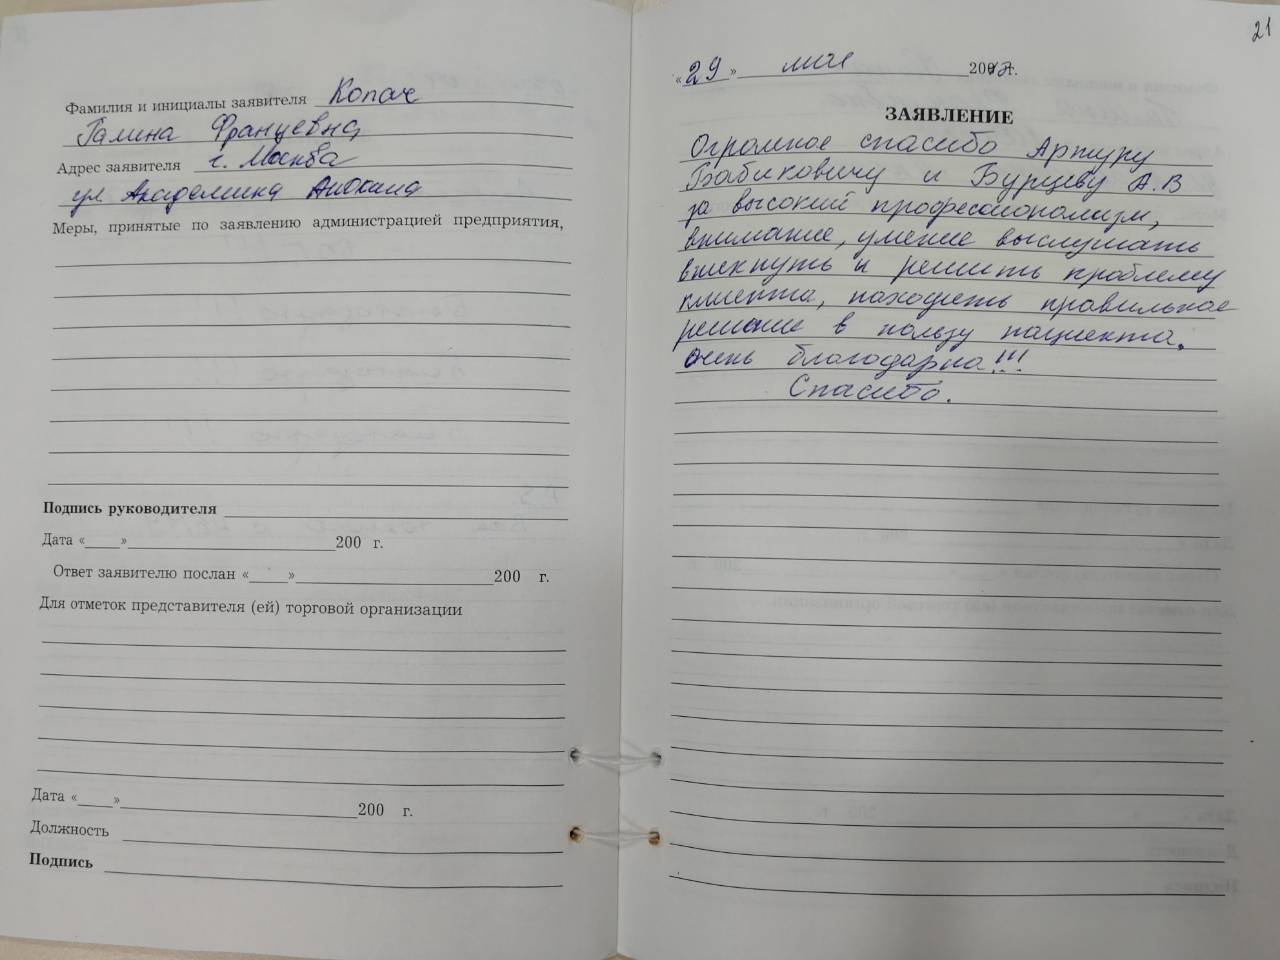 Фамилия и инициалы заявителя Копач
Галина Францевна
Адрес заявителя г. Москва
ул. Академика Анохина
Меры, принятые по заявлению администрацией предприятия,
Подпись руководителя
Дата «____»____200 г.
Ответ заявителю послан «____»____200 г.
Для отметок представителя (ей) торговой организации
Дата «____»____200 г.
Должность
Подпись
21
«29» мая 20 г.
ЗАЯВЛЕНИЕ
Огромное спасибо Артуру
Бабиковичу и Бурцеву А.В
за высокий профессионализм,
внимание, умение выслушать
вникнуть и решить проблему
клиента, находить правильное
решение в пользу пациента.
очень благодарна!!!
Спасибо.